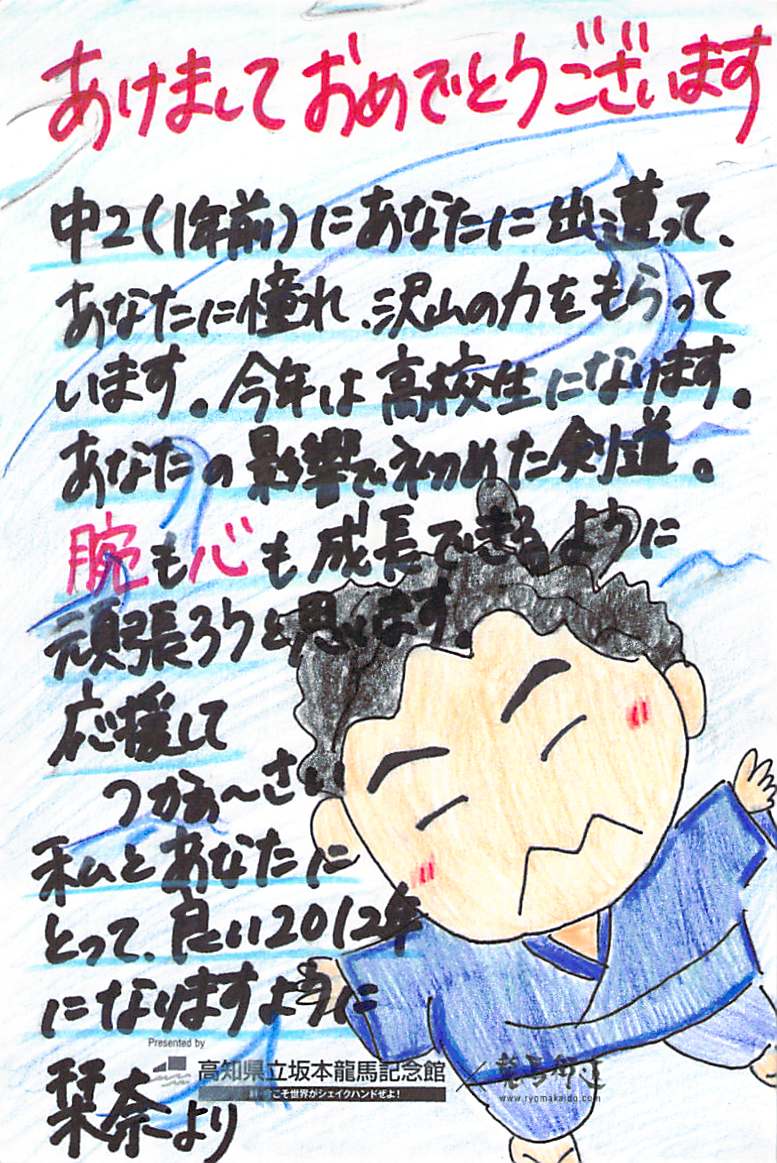 あけましておめでとうございます
中2(1年前)にあなたに出逢って、
あなたに憧れ、沢山の力をもらって
います。今年は高校生になります。
あなたの影響で初めた剣道。
腕も心も成長できるように
頑張ろうと思います。
応援して
つかぁ〜さい
私とあなたに
とって、良い2012年
になりますように
Presented by
高知県立坂本龍馬記念館
こそ世界がシェイクハンドぜよ!
www.ryomakaido.com
栞奈より